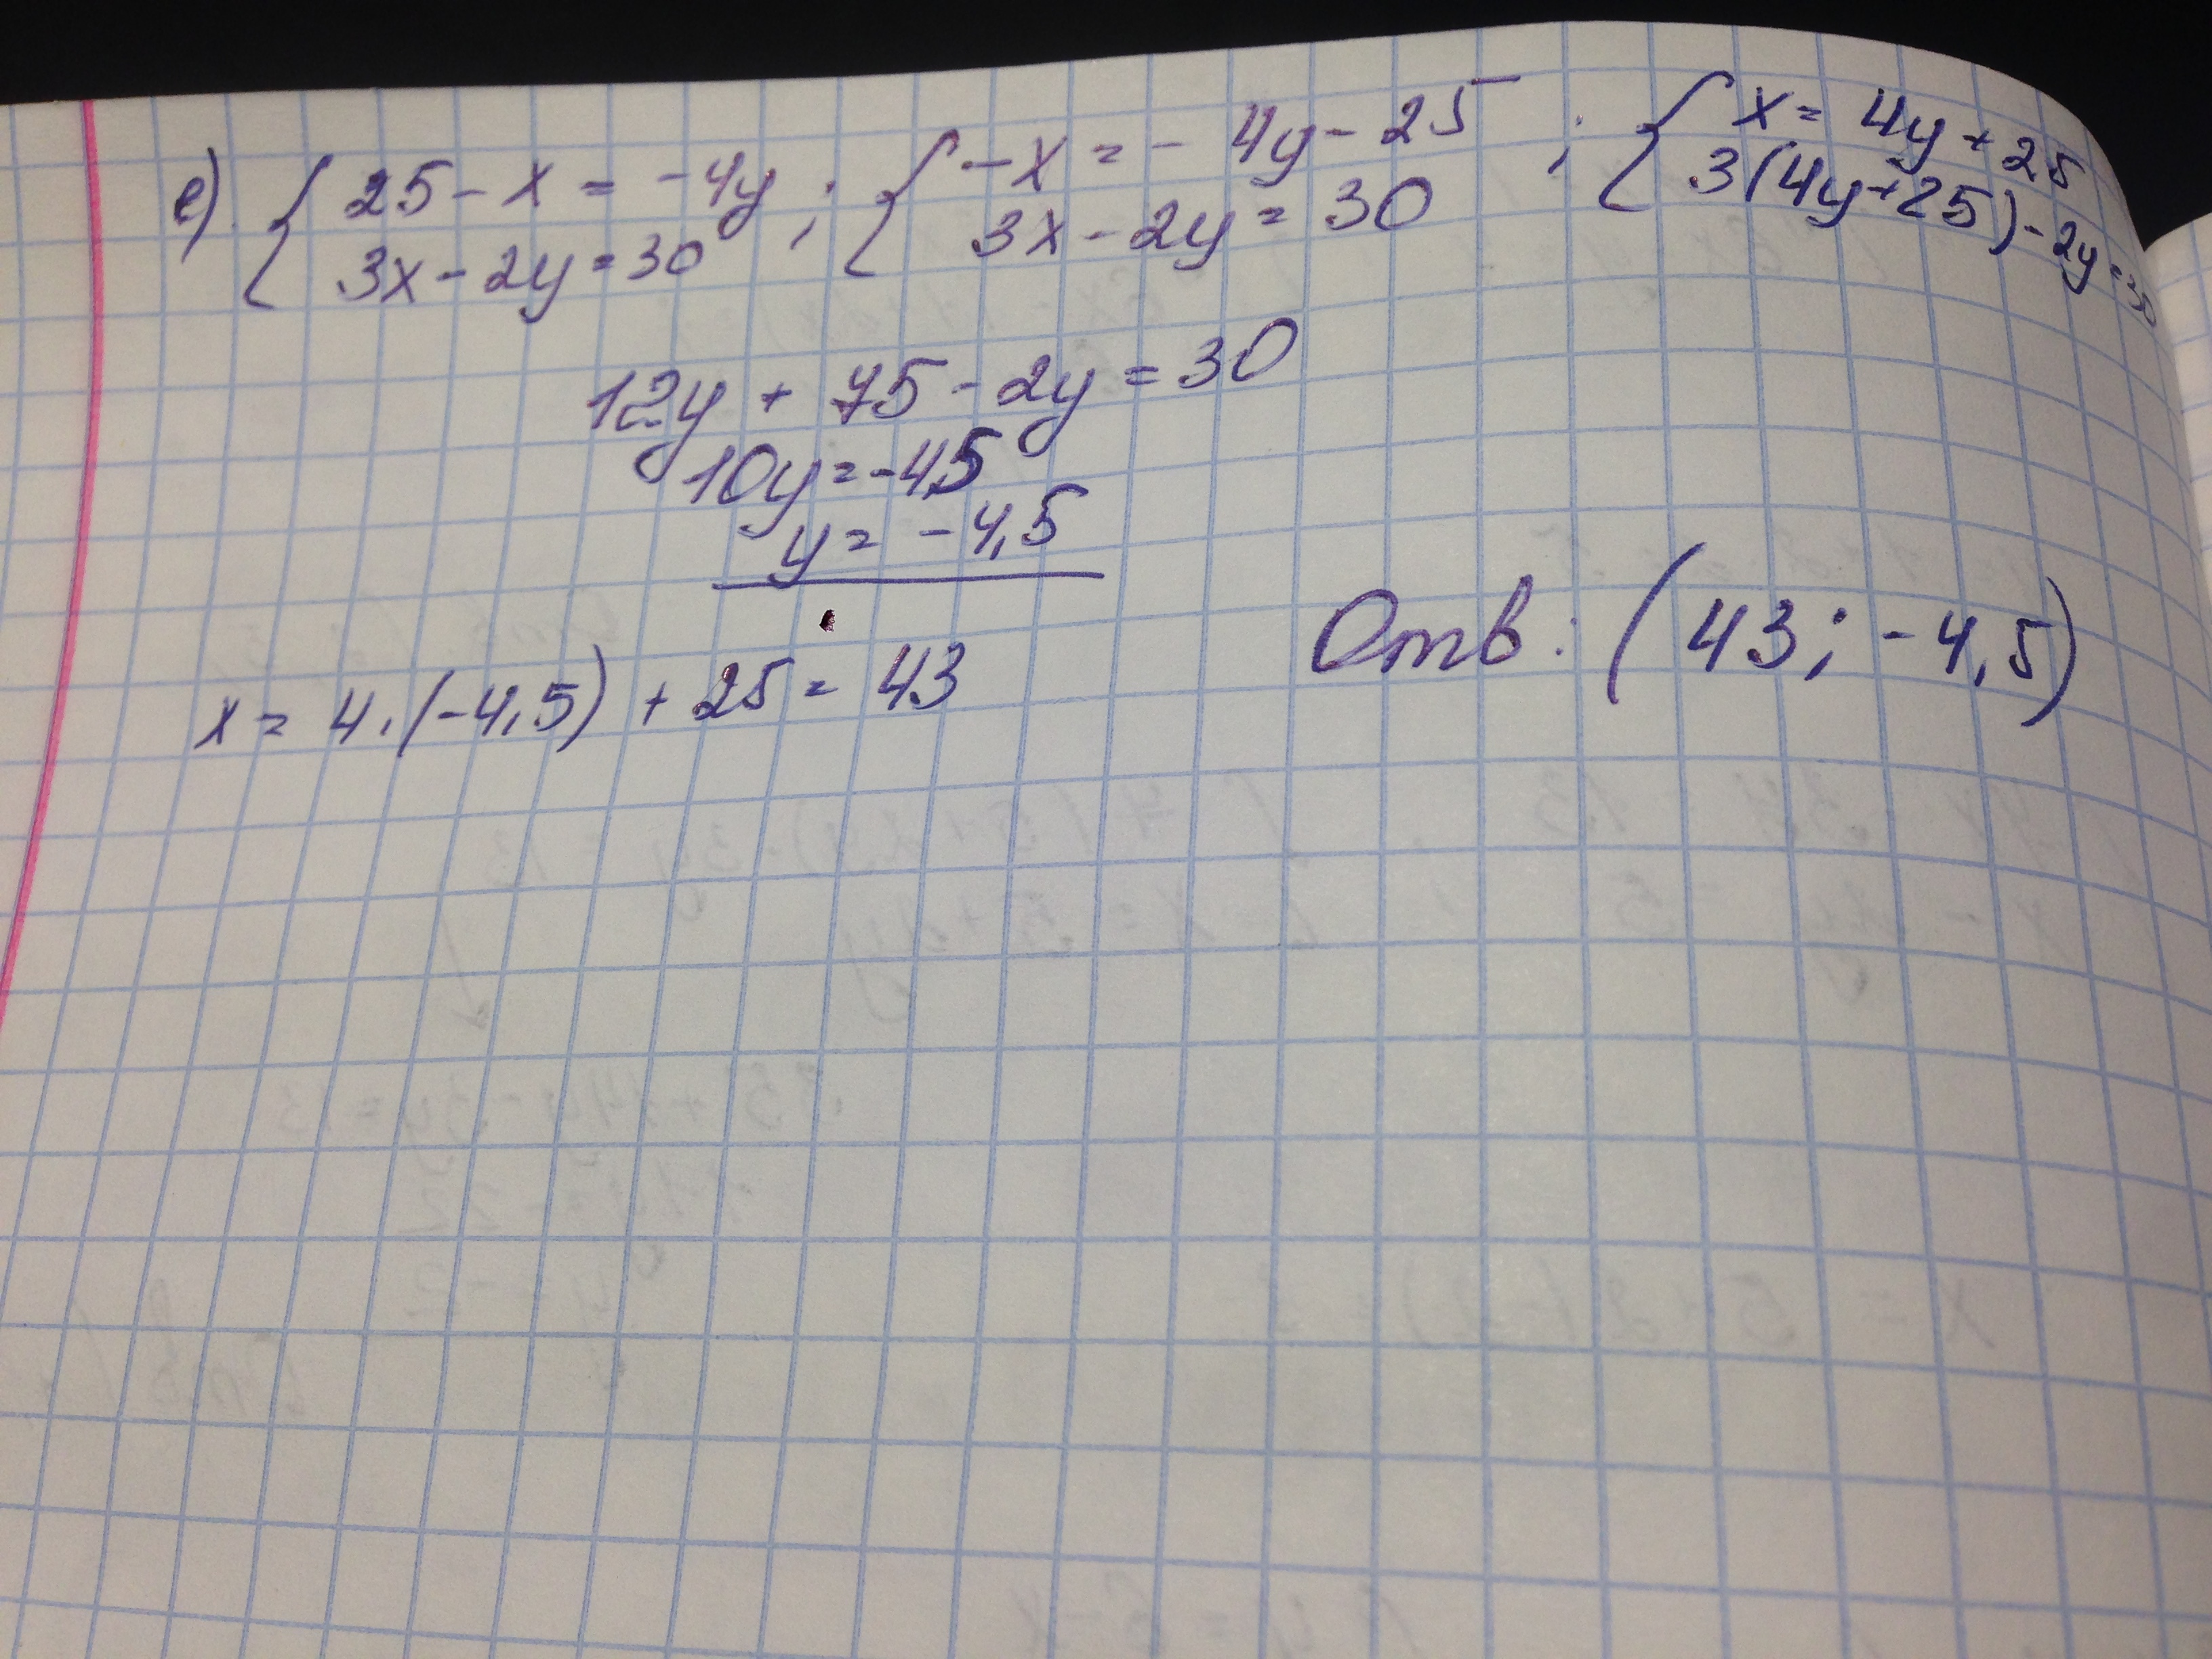 е) { 25 - x = -4y ; { -x = - 4y - 25 ; { x = 4y + 25
3x - 2y = 30 3x - 2y = 30 3(4y+25) - 2y = 30
12y + 75 - 2y = 30
10y = -45
y = -4,5
x = 4·(-4,5) + 25 = 43
Отв: (43; -4,5)